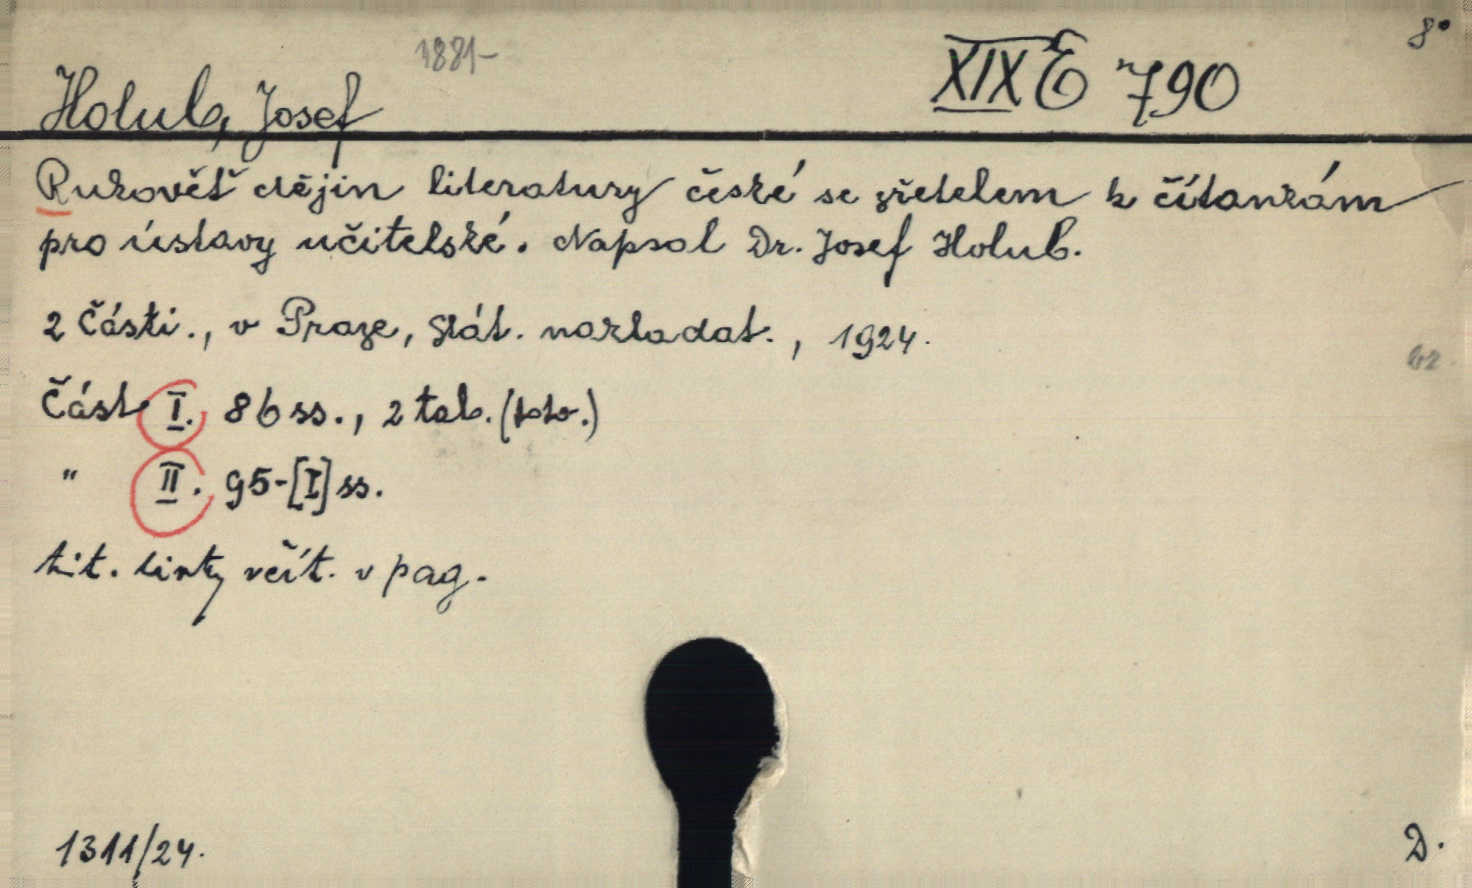 8°
1881-
XIX E 790
Holub, Josef
Rukověť dějin literatury české se zřetelem k čítankám
pro ústavy učitelské. Napsal Dr. Josef Holub.
2 části., v Praze, Stát. nakladat., 1924.
Část I. 86 ss., 2 tab. (fotr.)
" II. 95-[I] ss.
tit. listy včít. v pag.
1311/24.
D.